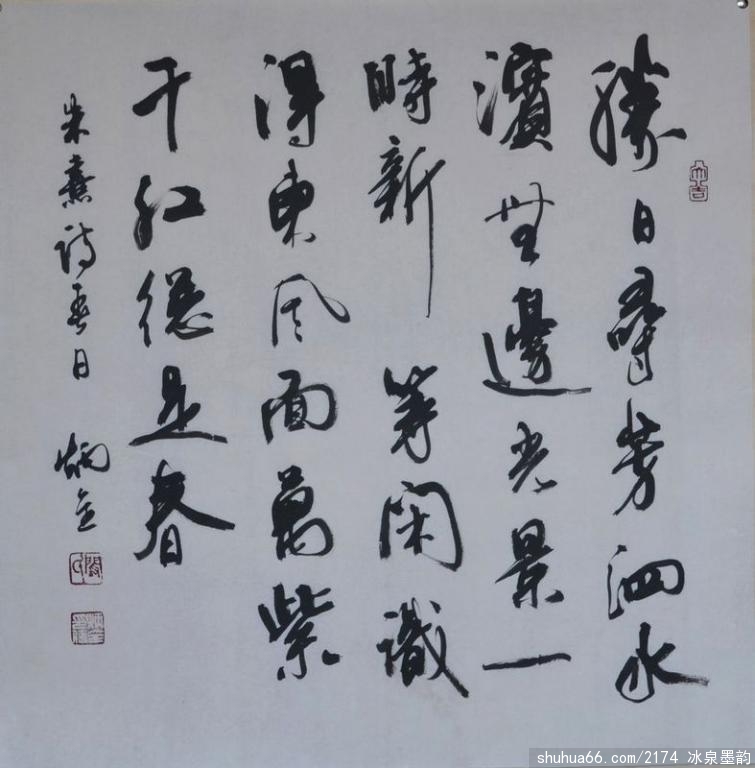 勝日尋芳泗水
濱無邊光景一
時新 等閑識
得東風面萬紫
千红總是春
朱熹诗春日 炳金
shuhua66.com/2174 冰泉墨韵